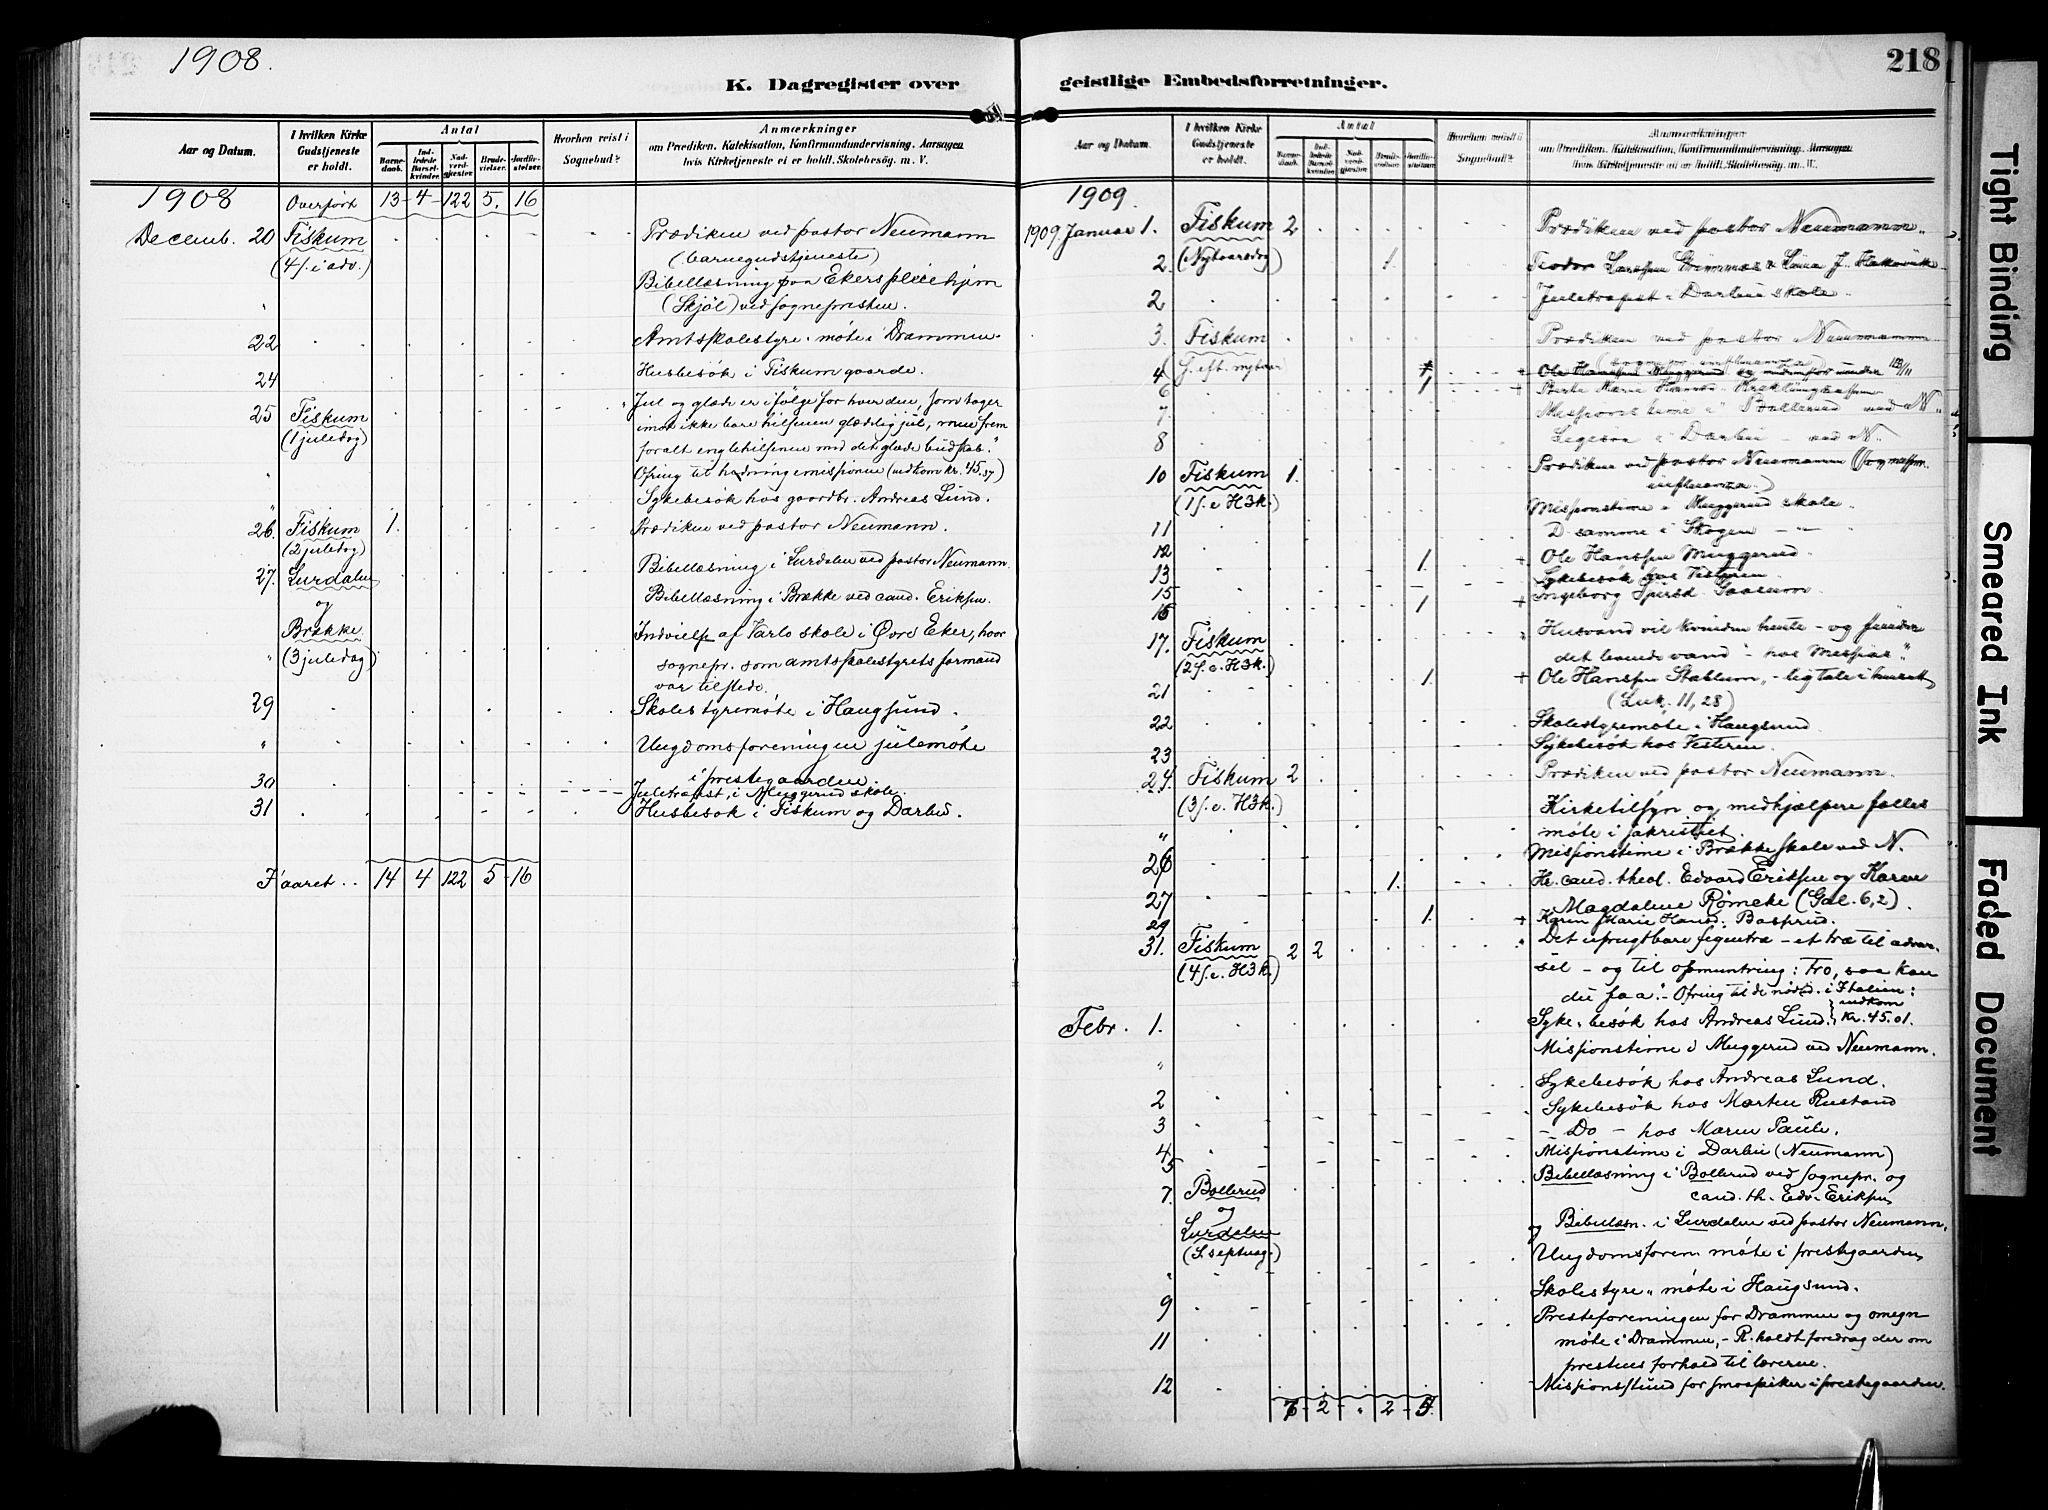 1908.
K. Dagregister over
Aar og Datum.
I hvilken Kirke Gudstjeneste er holdt.
Antal
Barnedaab.
Indledede Barselkvinder.
Nadverdgjæster.
Brudevielser.
Jordfæstelser.
Hvorhen reist i Sognebud?
Anmærkninger
om Prædiken, Katekisation, Konfirmandundervisning, Aarsagen
hvis Kirketjeneste ei er holdt, Skolebesøg, m. V.
1908 Overført 13 4 122 5. 16
Decemb. 20 Fiskum Prædiken ved pastor Neumann
(4 s. i adv.) (barnegudstjeneste)
" Bibellæsning paa Ekers pleiehjem
(Skjøl) ved sognepresten.
22 Amtsskolestyre-møte i Drammen.
24 Husbesøk i Fiskum gaarde.
25 Fiskum "Jul og glæde er i følge for hver den, som tager
(1 juledag) imot ikke bare hilsenen glædelig jul, men frem
foralt englehilsenen med det glade budskab."
" Ofring til hedningemissionen (indkom kr. 45.37)
" Sykebesøk hos gaardbr. Andreas Lund.
26 Fiskum 1. Prædiken ved pastor Neumann.
(2 juledag)
27. Lurdalen Bibellæsning i Lurdalen ved pastor Neumann.
og Bibellæsning i Brække ved cand. Eriksen.
Brække. Indvielse af Varlo skole i Øvre Eker, hvor
" (3 juledag) sognepr. som amtsskolestyrets formand
var tilstede.
29 Skolestyremøte i Haugsund.
" Ungdomsforeningen julemøte
i prestegaarden.
30 Juletræfest i Muggerud skole.
31 Husbesøk i Fiskum og Darbu.
I aaret . . 14 4 122 5 16
218
geistlige Embedsforretninger.
Aar og Datum.
I hvilken Kirke Gudstjeneste er holdt.
Antal
Barnedaab.
Indledede Barselkvinder.
Nadverdgjæster.
Brudevielser.
Jordfæstelser.
Hvorhen reist i Sognebud?
Anmærkninger
om Prædiken, Katekisation, Konfirmandundervisning, Aarsagen
hvis Kirketjeneste ei er holdt, Skolebesøg, m. V.
1909.
1909. Januar 1. Fiskum 2 Prædiken ved pastor Neumann.
2 (Nytaarsdag) 1 Teodor Larssen & Lina J. Hakavik
2 Juletræfest i Darbu skole.
3. Fiskum Prædiken ved pastor Neumann
4 S. eft. nytaar Ole Hanssen Muggerud
6 1 + Berte Marie
7 i Bollerud ved N.
8 i Darbu - ved N.
10 Fiskum 1. Prædiken ved pastor Neumann (sognepr.
(1 s. e. H3k.) influenza.)
11 Missionstime i Muggerud skole
12 D. samme i Skogen
13 1. + Ole Hanssen Muggerud.
15 Sykebesøk hos Vesteren.
16 1 + Ingeborg
17. Fiskum "Husvand vil kvinden hente - og finder
(2 s. e. H3k.) det levende vand" - hos Messias."
21 1. + Ole Hanssen Stablum, - ligtale i huset
(Luk. 11, 28)
22 Skolestyremøte i Haugsund.
23 Sykebesøk hos Vesteren.
24. Fiskum 2 Prædiken ved pastor Neumann.
(3 s. e. H3k.) Kirketilsyn og medhjælpere fælles
" møte i sakristiet.
26 Missionstime i Brække skole ved N.
27 1. Hr. cand. theol. Edvard Eriksen og Karen
Magdalene Rømcke (Gal. 6,2).
29 1. + Karen Marie Hansd. Basprud.
31. Fiskum 2 2 "Det ufrugtbare figentræ - et træ til advar-
(4 s. e. H3k.) sel - og til opmuntring: Tro, saa kan
du faa." - Ofring til de nødl. i Italien:
indkom
Febr. 1. Syke-besøk hos Andreas Lund. kr. 45.01.
" Missionstime i Muggerud ved Neumann.
2 Sykebesøk hos Andreas Lund.
3 Sykebesøk hos Marten Rustand
4 - Do - hos Maren Paule.
5 Missionstime i Darbu (Neumann)
7. Bollerud Bibellæsning i Bollerud ved sognepr. og
og cand. th. Edv. Eriksen
Lurdalen og Bibellæsn. i Lurdalen ved pastor Neumann.
(S. septuag.) Ungdomsforen. møte i prestegaarden
" Skolestyre- møte i Haugsund.
9 Presteforeningen for Drammen og omegn
11 møte i Drammen, - R. holdt foredrag der om
prestens forhold til lærerne.
12 Missionsstund for smaapiker i prestegaarden.
7 2 " 2 5.
Tight Binding
Smeared Ink
Faded Document